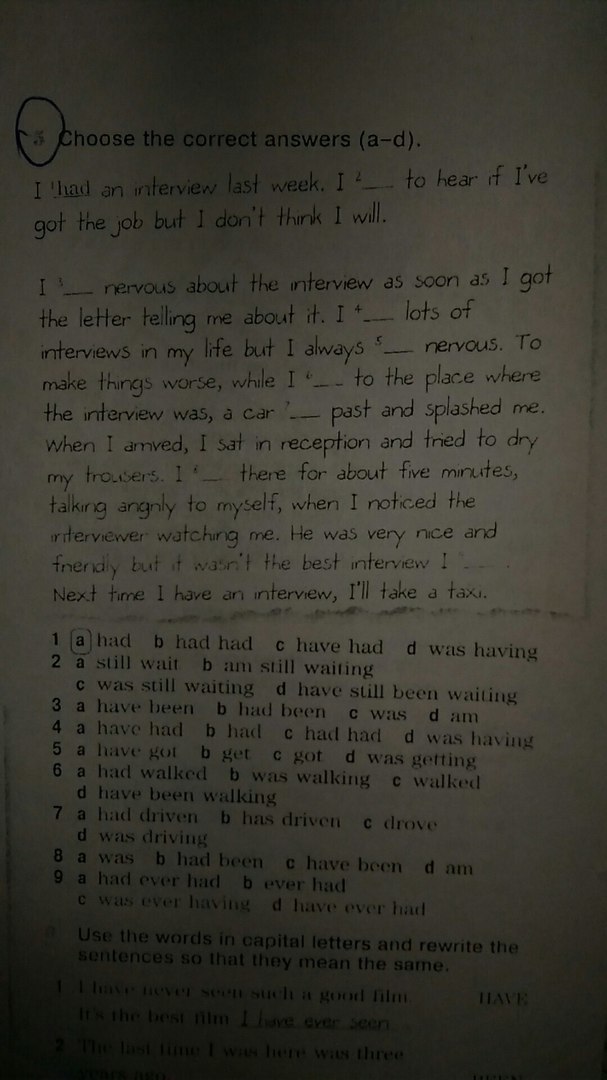 5 Choose the correct answers (a–d).
I ¹had an interview last week. I ²___ to hear if I've
got the job but I don't think I will.
I ³___ nervous about the interview as soon as I got
the letter telling me about it. I ⁴___ lots of
interviews in my life but I always ⁵___ nervous. To
make things worse, while I ⁶___ to the place where
the interview was, a car ⁷___ past and splashed me.
When I arrived, I sat in reception and tried to dry
my trousers. I ⁸___ there for about five minutes,
talking angrily to myself, when I noticed the
interviewer watching me. He was very nice and
friendly but it wasn't the best interview I ⁹___.
Next time I have an interview, I'll take a taxi.
1 a had b had had c have had d was having
2 a still wait b am still waiting
c was still waiting d have still been waiting
3 a have been b had been c was d am
4 a have had b had c had had d was having
5 a have got b get c got d was getting
6 a had walked b was walking c walked
d have been walking
7 a had driven b has driven c drove
d was driving
8 a was b had been c have been d am
9 a had ever had b ever had
c was ever having d have ever had
Use the words in capital letters and rewrite the
sentences so that they mean the same.
1 I have never seen such a good film. HAVE
It's the best film I have ever seen
2 The last time I was here was three
years ago. BEEN